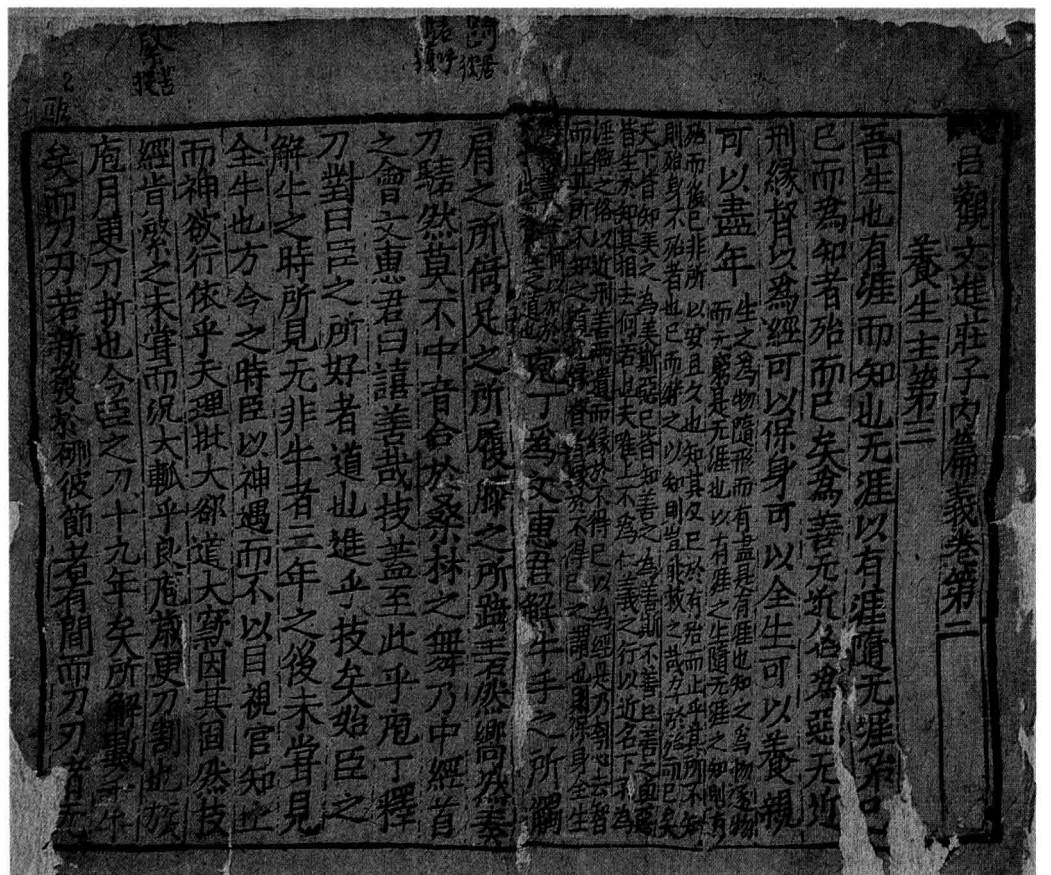 呂觀文進莊子內篇義卷第二
養生主第三
吾生也有涯而知也无涯以有涯隨无涯殆已
已而為知者殆而已矣為善无近名為惡无近
刑緣督以為經可以保身可以全生可以養親
可以盡年
生之為物隨形而有盡是有涯也知之為物逐物
而无窮是无涯也以有涯之生隨无涯之知則有
殆而後已非所以安且久也知其殆已於有殆而止乎其所不知
則殆身不殆者也已而繼之以知則豈能救之哉於殆而已矣
天下皆知美之為美斯惡已皆知善之為善斯不善已善之與惡
皆生於知其相去何若也夫唯上不為仁義之行以近名下不為
淫僻之俗以近刑善而遺而緣於不得已以為經是乃去智
而止其所不知之
庖丁為文惠君解牛手之所觸
肩之所倚足之所履膝之所踦砉然嚮然奏
刀騞然莫不中音合於桑林之舞乃中經首
之會文惠君曰譆善哉技蓋至此乎庖丁釋
刀對曰臣之所好者道也進乎技矣始臣之
解牛之時所見无非牛者三年之後未嘗見
全牛也方今之時臣以神遇而不以目視官知止
而神欲行依乎天理批大郤導大窾因其固然技
經肯綮之未嘗而況大軱乎良庖歲更刀割也族
庖月更刀折也今臣之刀十九年矣所解數千牛
矣而刀刃若新發於硎彼節者有間而刀刃者无